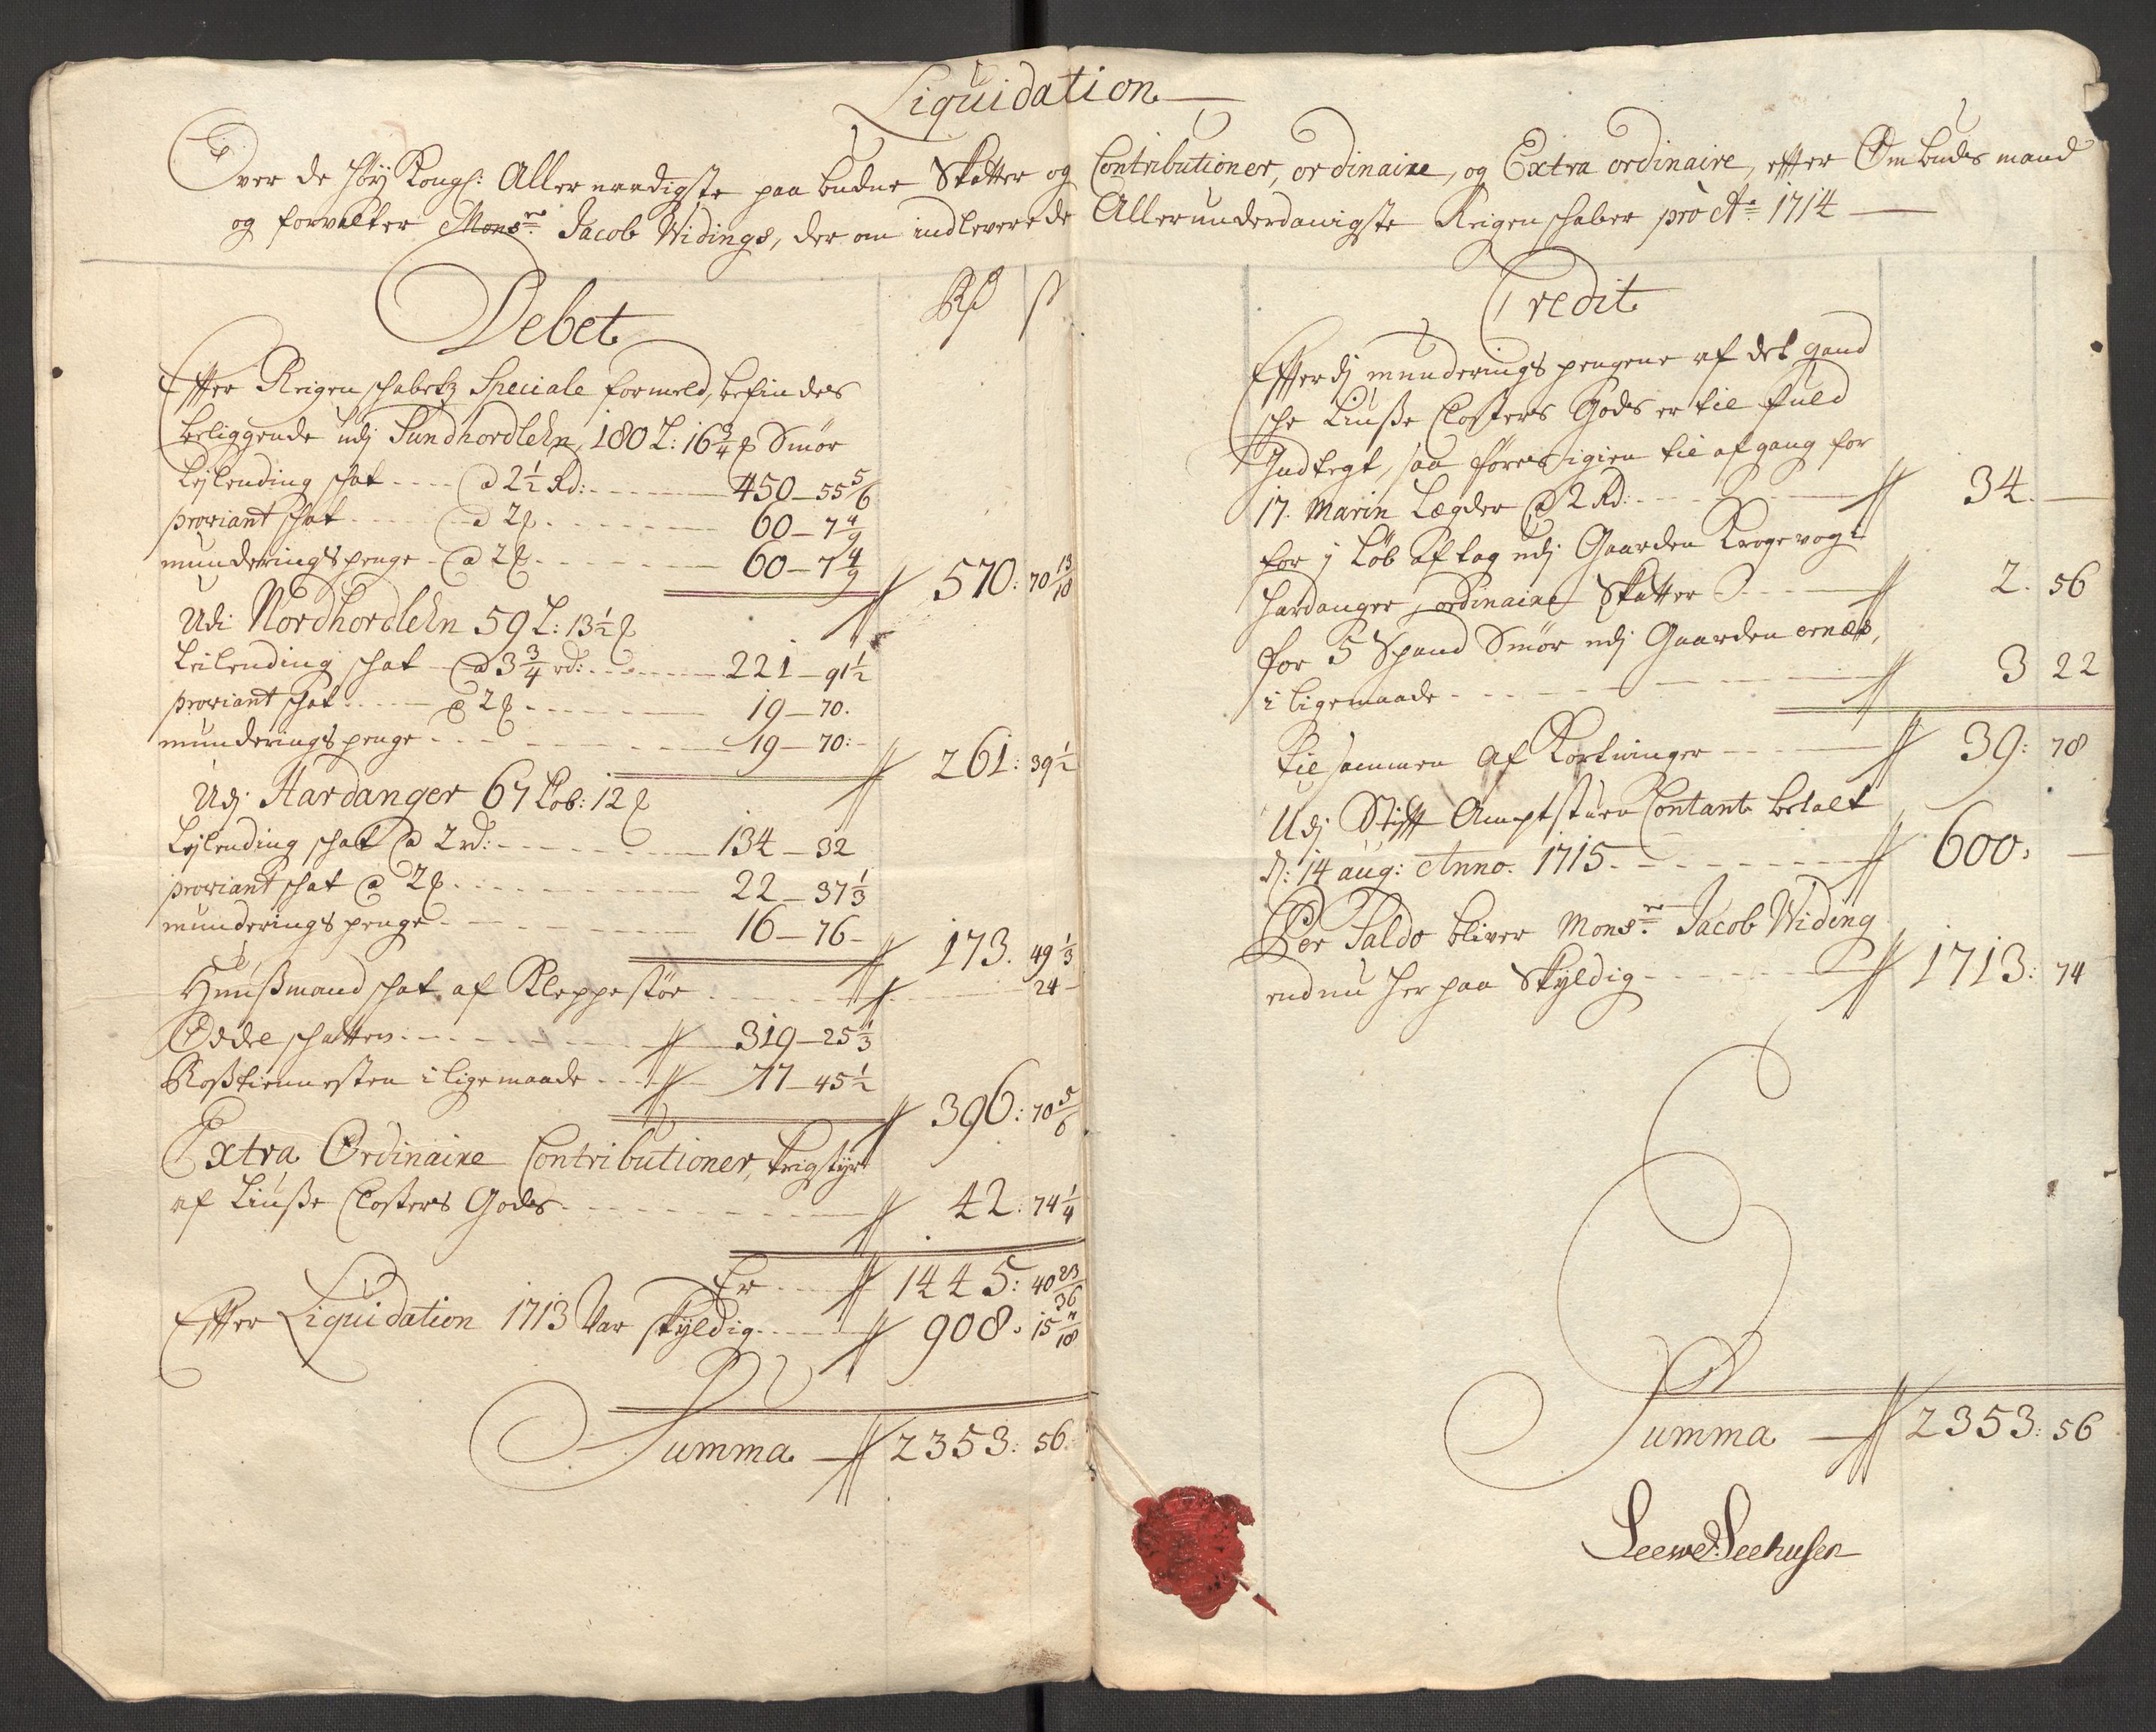 Liquidation
Over de Høy Kongl: Allernaadigste paabudne Skatter og Contributioner, ordinaire, og Extra ordinaire, effter Ombudsmand
og forvalter Monsr. Jacob Widings, der om indleverede Allerunderdanigste Reigenschaber pro Ao 1714
Debet
Rd ß
Effter Reigenschabetz Speciale formeld, befindes
beliggende udj Sundhordlehn, 180 L: 16 3/4 Smør
Lejlending schat @ 2 1/2 Rd: 450 - 55 5/6
proviant schat @ 2 60 - 7 4/9
munderings penge @ 2 60 - 7 4/9
570: 70 13/18
Udi Nordhordlehn 59 L: 13 1/2
Leilending schat @ 3 3/4 rd: 221 - 91 1/2
proviant schat @ 2 19 - 70.
munderings penge 19 - 70:
261: 39 1/2
Udj Hardanger 67 Løb: 12
Lejlending schat @ 2 rd: 134 - 32
proviant schat @ 2 22 - 37 1/3
munderings penge 16 - 76
173. 49 1/3
Huußmand schat af Kleppestøe 24
Oddel schatten 319 - 25 1/3
Roßtiennesten i ligemaade 77 - 45 1/2
396: 70 5/6
Extra Ordinaire Contributioner, krigstyr
af Liuße Closters Gods 42: 74 1/4
Er 1445: 40 23/36
Effter Liquidation 1713 Var skyldig 908: 15 /18
Summa 2353: 56.
Credit
Effterdj munderings pengene af det gand
sche Liuße Closters Gods er til fuld
Indtegt, saa føres igien til afgang for
17. Marin Lægder @ 2 Rd: 34.
for j Løb aftag udj Gaarden Krogevog i
Hardanger, ordinaire Skatter 2. 56
for 5 Spand Smør udj Gaarden
i ligemaade 3 22
tilsammen Af Kortninger 39: 78
Udj Stifft Amptstuen Contant betalt
d: 14 aug: Anno. 1715. 600:
Per Saldo bliver Monsr. Jacob Widing
endnu her paa Skyldig 1713: 74
Summa 2353: 56
Seehusen